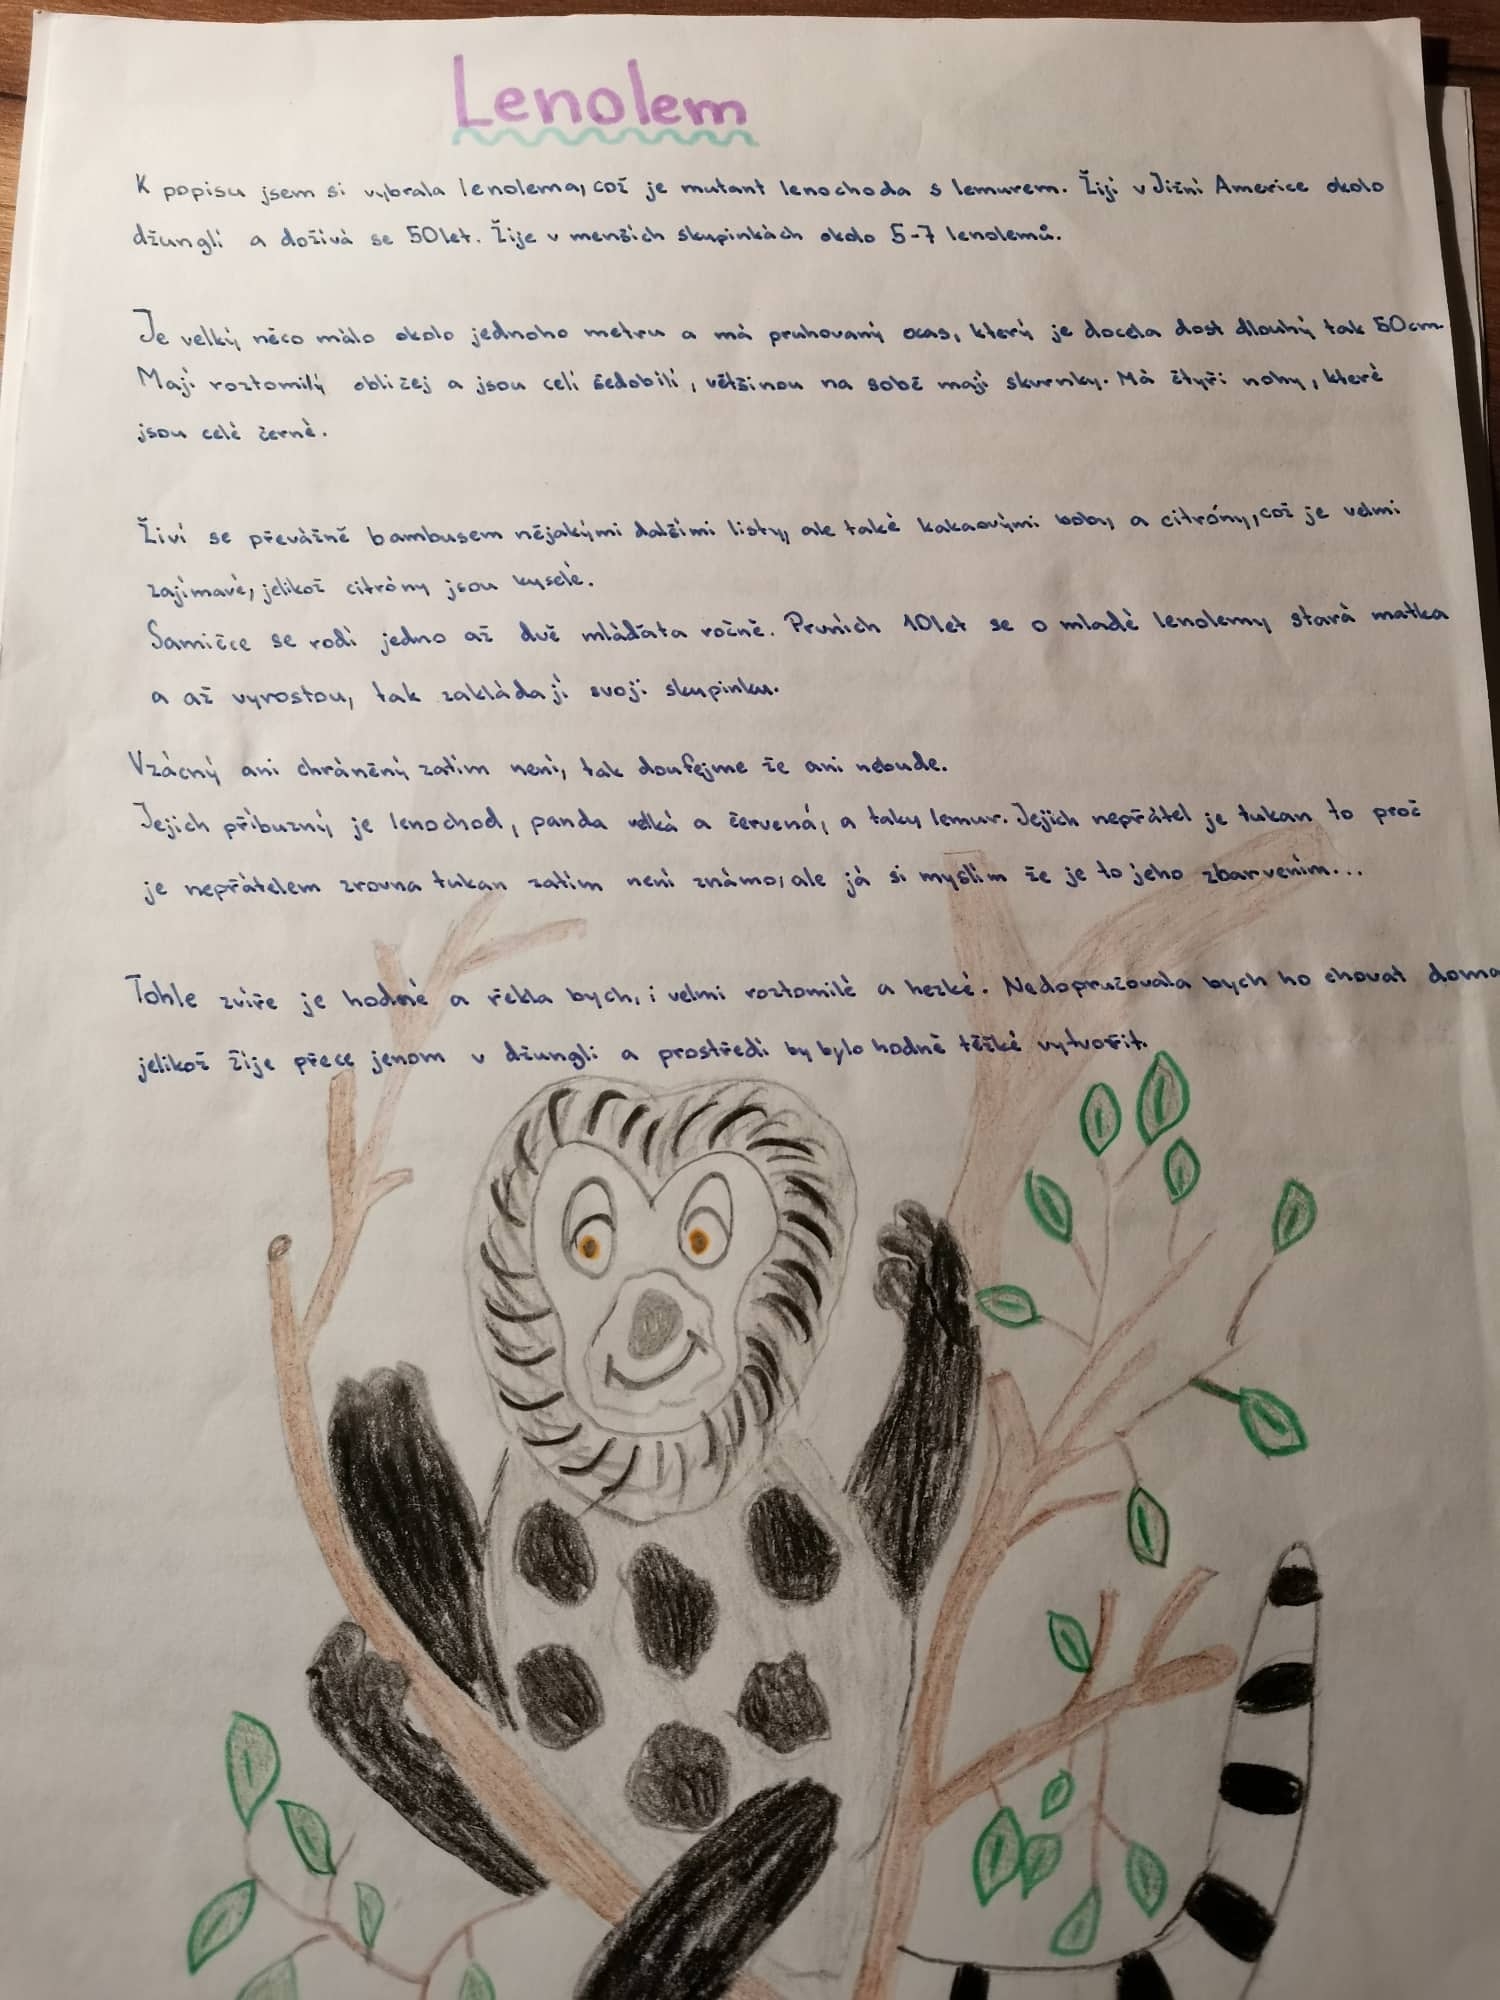 Lenolem
K popisu jsem si vybrala lenolema, což je mutant lenochoda s lemurem. Žijí v Jižní Americe okolo
džunglí a dožívá se 50let. Žije v menších skupinkách okolo 5-7 lenolemů.
Je velký něco málo okolo jednoho metru a má pruhovaný ocas, který je docela dost dlouhý tak 50cm.
Mají roztomilý obličej a jsou celí šedobílí, většinou na sobě mají skvrnky. Má čtyři nohy, které
jsou celé černé.
Živí se převážně bambusem nějakými dalšími listy, ale také kakaovými boby a citróny, což je velmi
zajímavé, jelikož citróny jsou kyselé.
Samičce se rodí jedno až dvě mláďata ročně. Prvních 10let se o mladé lenolemy stará matka
a až vyrostou, tak zakládají svoji skupinku.
Vzácný ani chráněný zatím není, tak doufejme že ani nebude.
Jejich příbuzný je lenochod, panda velká a červená, a taky lemur. Jejich nepřátel je tukan to proč
je nepřátelem zrovna tukan zatím není známo, ale já si myslím že je to jeho zbarvením...
Tohle zvíře je hodné a řekla bych, i velmi roztomilé a hezké. Nedopručovala bych ho chovat doma
jelikož žije přece jenom v džungli a prostředí by bylo hodně těžké vytvořit.